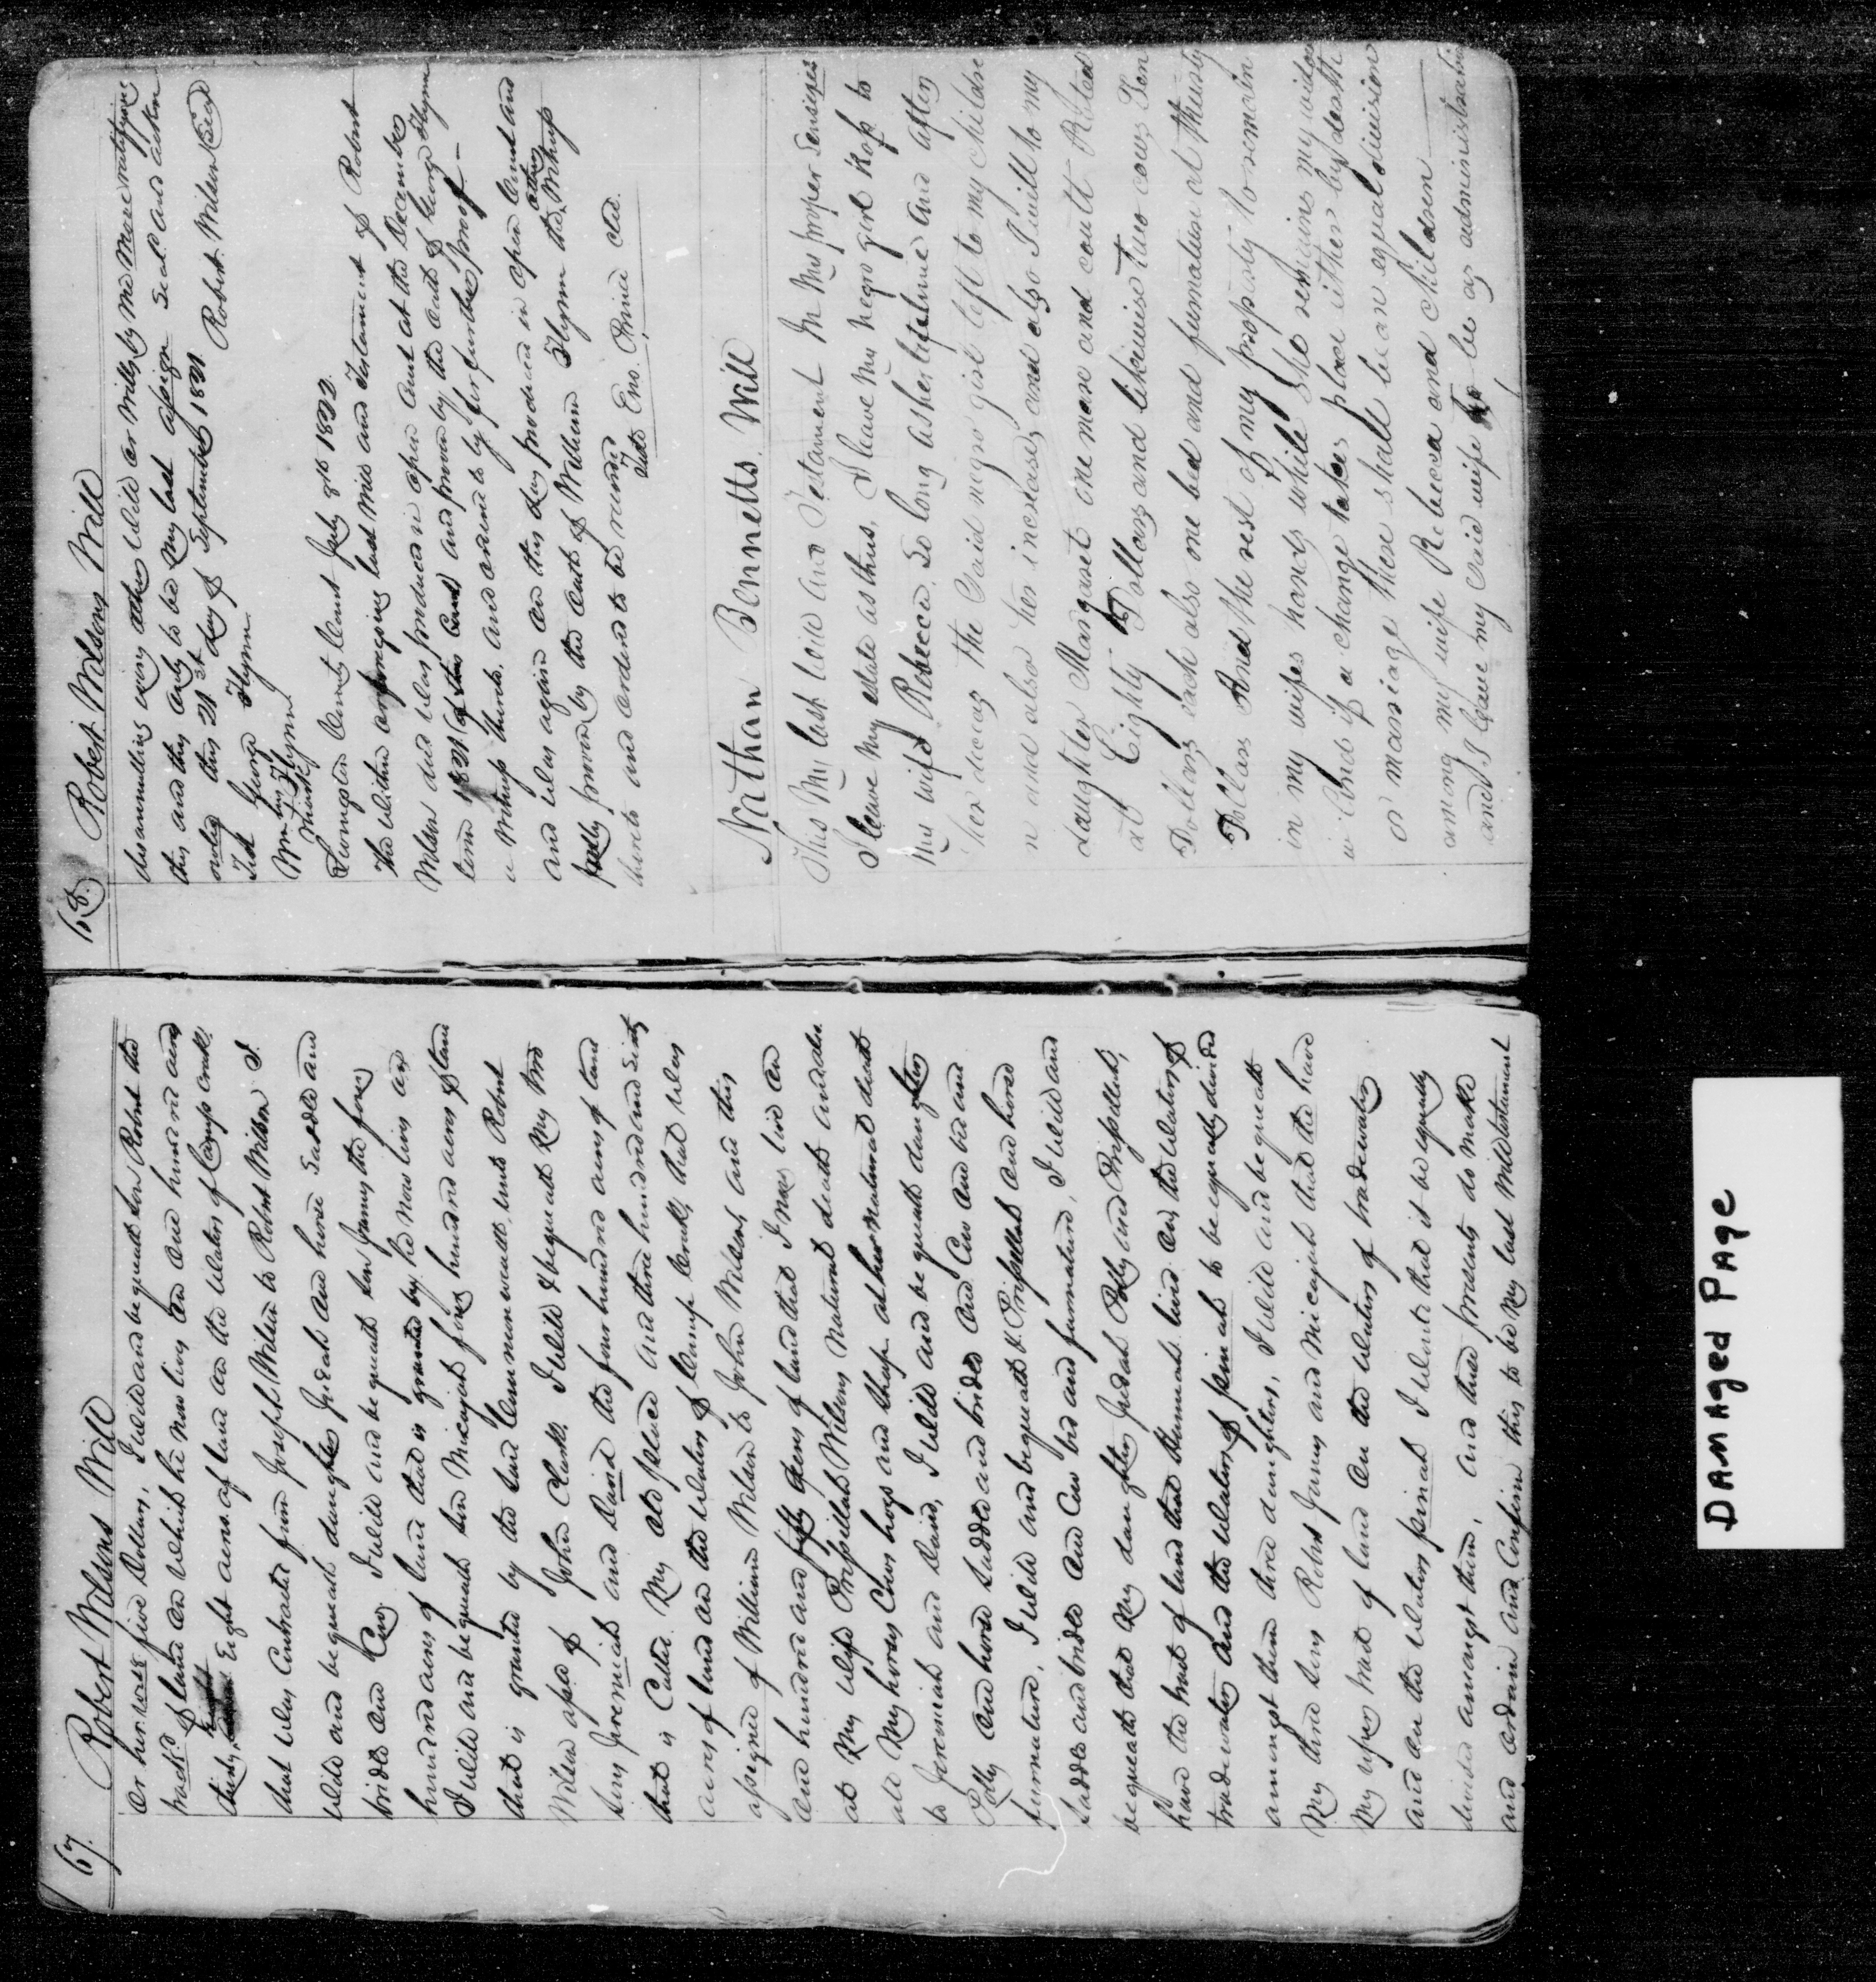 67. Robert Wilsons Will
or her five Dollars, I will and bequeath son Robert the
tract of land on which he now lives on one hundred and
thirty Eight acres of land on the waters of Camp Creek
that was Contracted from Joseph Wilson to Robert Wilson I
Will and bequeath daughter Judah one horse Saddle and
bridle and Cow I will and bequeath son James the four
hundred acres of land that is granted by he now lives on
I will and bequeath son Micajah four hundred acres of land
that is granted by the said Commonwealth unto Robert
Wilson of John Clark I will & bequeath my two
sons Jeremiah and David the four hundred acres of land
that is Called my old place and three hundred and Sixty
acres of land on the waters of Camp Creek, that was
assigned of William Wilson to John Wilson, and this
one hundred and fifty acres of land that I now live on
at my wifes Prissillah Wilsons natural death and also
all my horses Cows hogs and sheep at her natural death
to Jeremiah and David, I will and bequeath daughter
Polly one horse saddle and bridle one Cow one bed and
furniture, I will and bequeath Prissillah one horse
saddle and bridle one Cow bed and furniture, I will and
bequeath that my daughters Judah Polly and Prissillah,
have the tract of land that lives on, the waters of
tradewater and the waters of to be equally divided
amongst them three daughters, I will and bequeath
my three sons Robert James and Micajah that the have
my upper tract of land on the waters of tradewater
and on the waters I want that it be equally
divided amongst them, and these presents do make
and ordain and Confirm this to be my last will testament
68. Robert Wilsons Will
disannulling every other Will or wills by me made ratifying
this and this only to be my last assign Seal and acton
this 21st day of September 1821
Test George Flynn Robert Wilson (Seal)
Wm his Flynn
mark
Livingston County Court July 8th 1822
The within last Will and Testament of Robert
Wilson decd was produced in open Court at the December
term 1821 of this Court and proven by the oath of George Flynn
a witness thereto, and ordered to lye for further proof —
and was again on this day produced in open Court and
fully proven by the oath of William Flynn the other Witness
thereto and ordered to be recorded
Teste Eno. Prince Clk.
Nathan Bennetts. Will
This My last Will and Testament In My proper Senses
I leave My estate as thus, I leave My Negro girl to
My wife Rebecca. So long as her lifetime and after
her deceas the Said negro girl left to my Childre
n and also her increase, and also I will to my
daughter Margaret one mare and coult Rated
at Eighty Dollars and likewise Two cows Ten
Dollars each also one bed and furnature at thirty
Dollars And the rest of my property to remain
in my wifes hands while she remains my widow
and if a change takes place either by death
or marriage there shall be an equal division
among my wife Rebecca and Children
and I leave my said wife to be as administratrix
DAMAged PAge